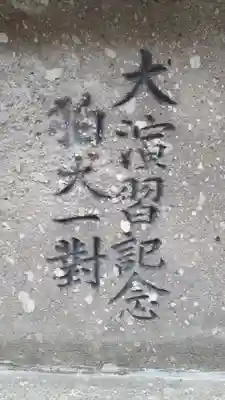 大演習記念
狛犬一對